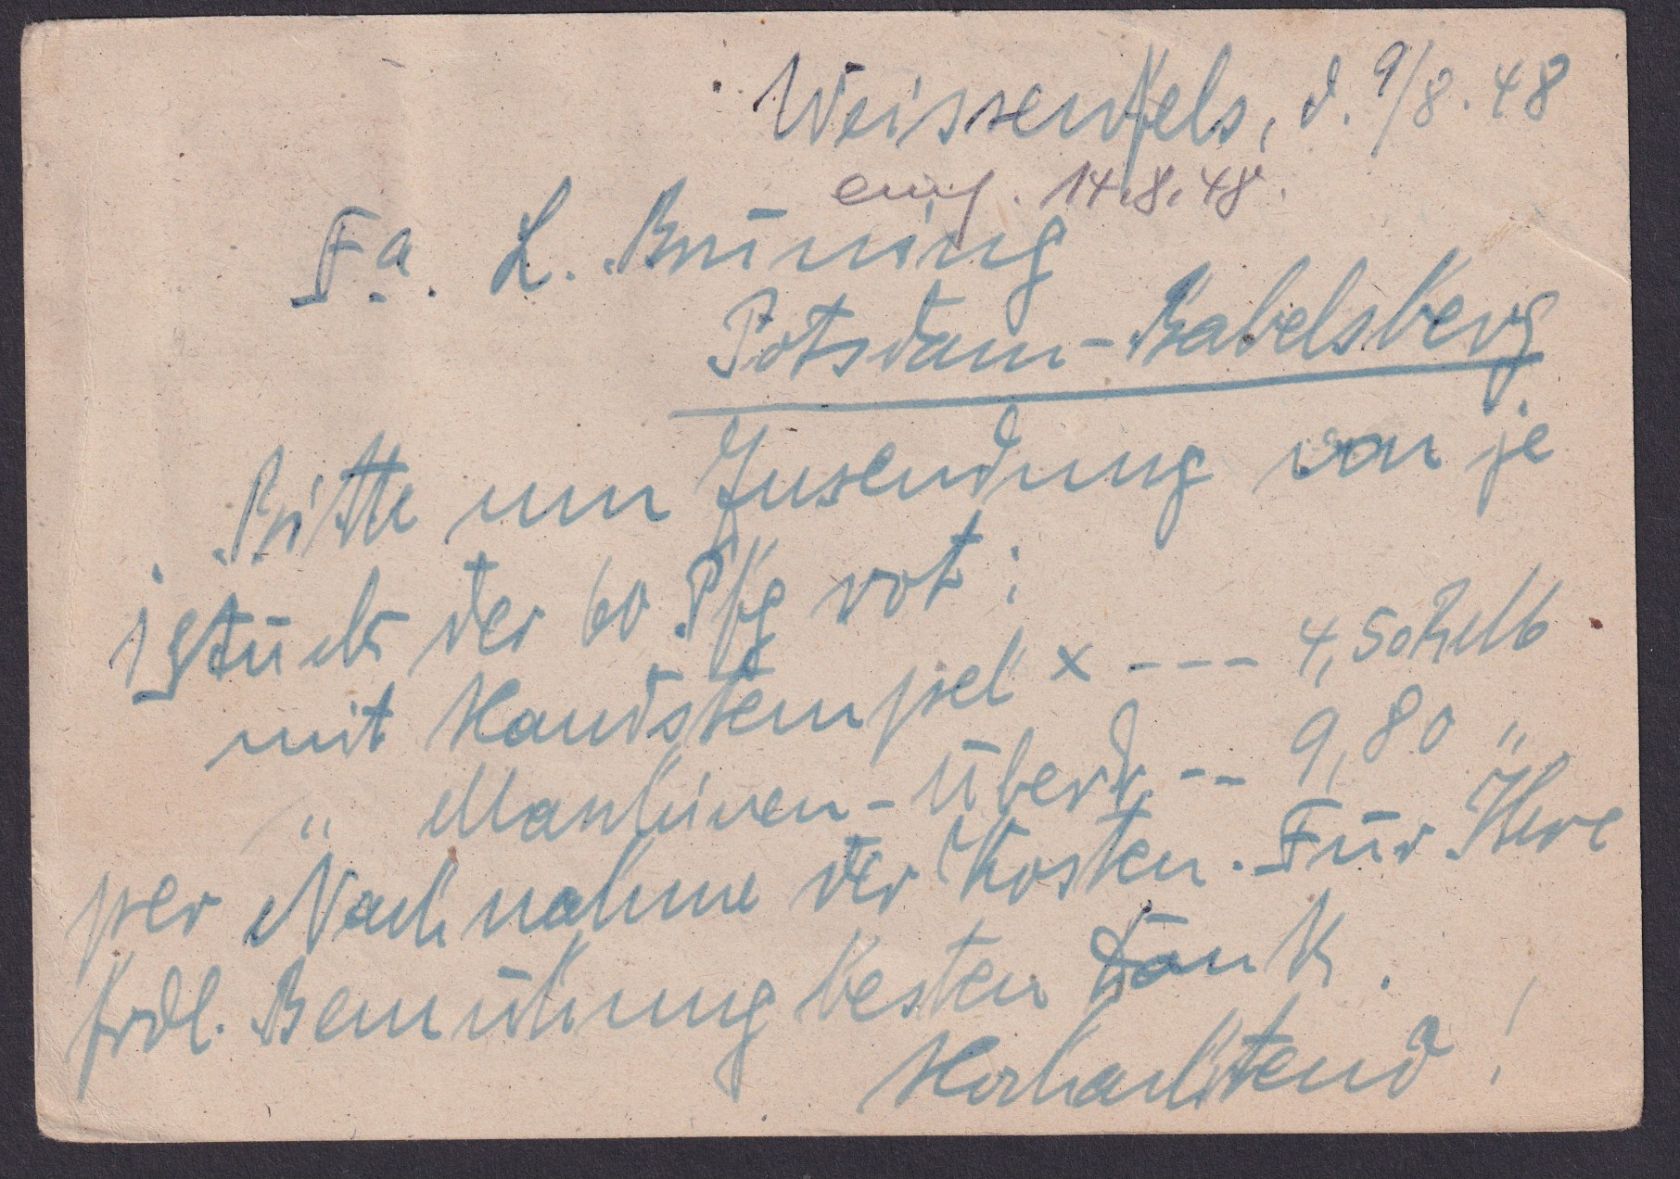 Weissenfels, d. 9/8.48
eing. 14.8.48.
Fa. L. Brüning
Potsdam-Babelsberg
Bitte um Zusendung von je
1 Stück der 60 Pfg rot:
mit Handstempel x --- 4,50 RM
" Maschinen-Überdr. -- 9,80 "
per Nachnahme der Kosten. Für Ihre
frdl. Bemühung besten Dank.
Hochachtend!